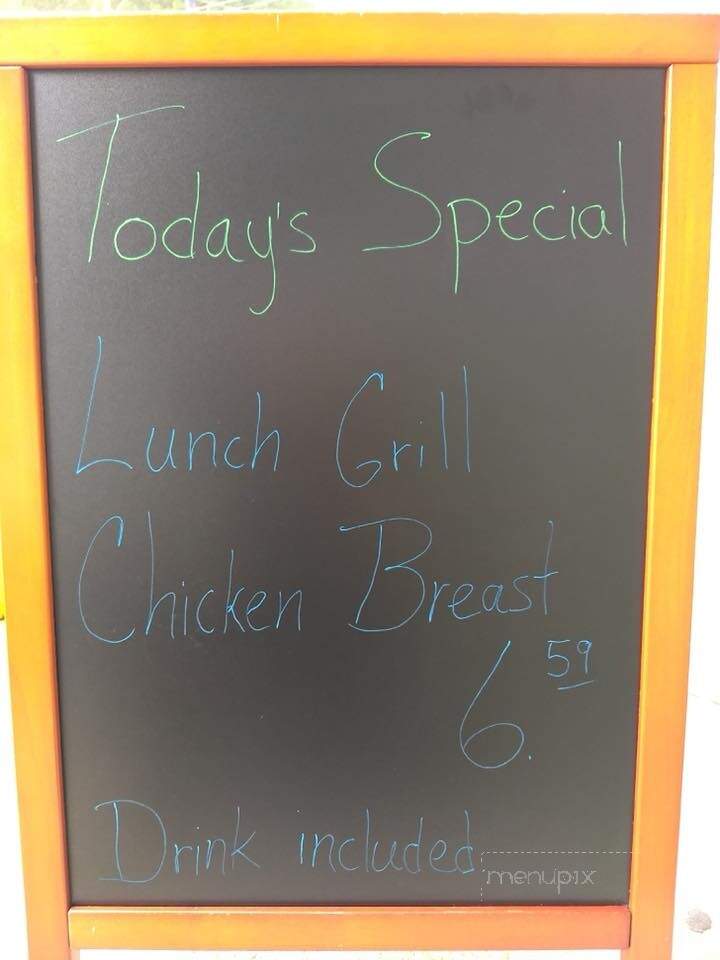 Today's Special
Lunch Grill
Chicken Breast
6.59
Drink included
menupix